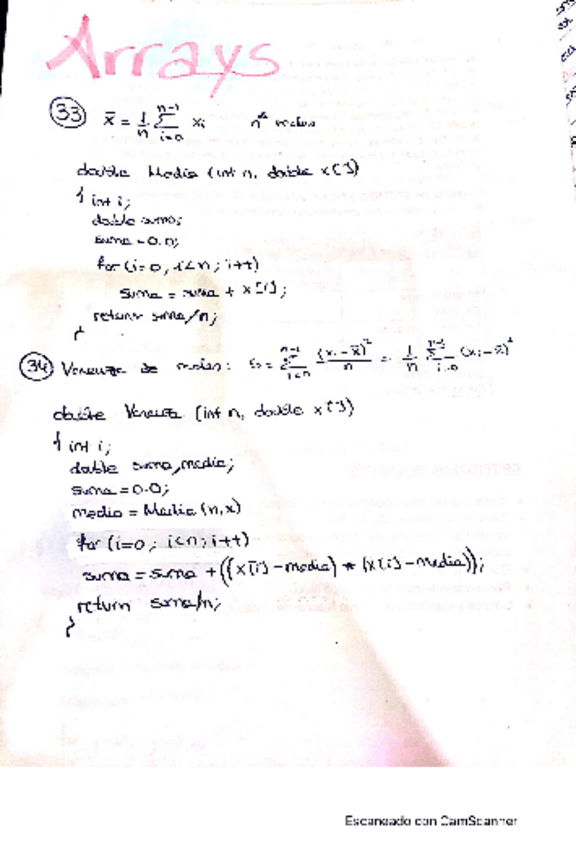 Arrays
33 x̄ = 1/n Σ_{i=0}^{n-1} xi nº reales
double Media (int n, double x[])
{ int i;
double suma;
suma = 0.0;
for (i=0, i<n; i++)
suma = suma + x[i];
return suma/n;
}
34 Varianza de reales: = Σ_{i=0}^{n-1} (xi - x̄)²/n = 1/n Σ_{i=0}^{n-1} (xi - x̄)²
double Varianza (int n, double x[])
{ int i;
double suma, media;
suma = 0.0;
media = Media (n,x)
for (i=0; i<n; i++)
suma = suma + ((x[i] - media) * (x[i] - media));
return suma/n;
}
Escaneado con CamScanner